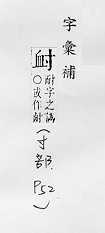 字彙補
字之譌
○或作
(寸部
P52)